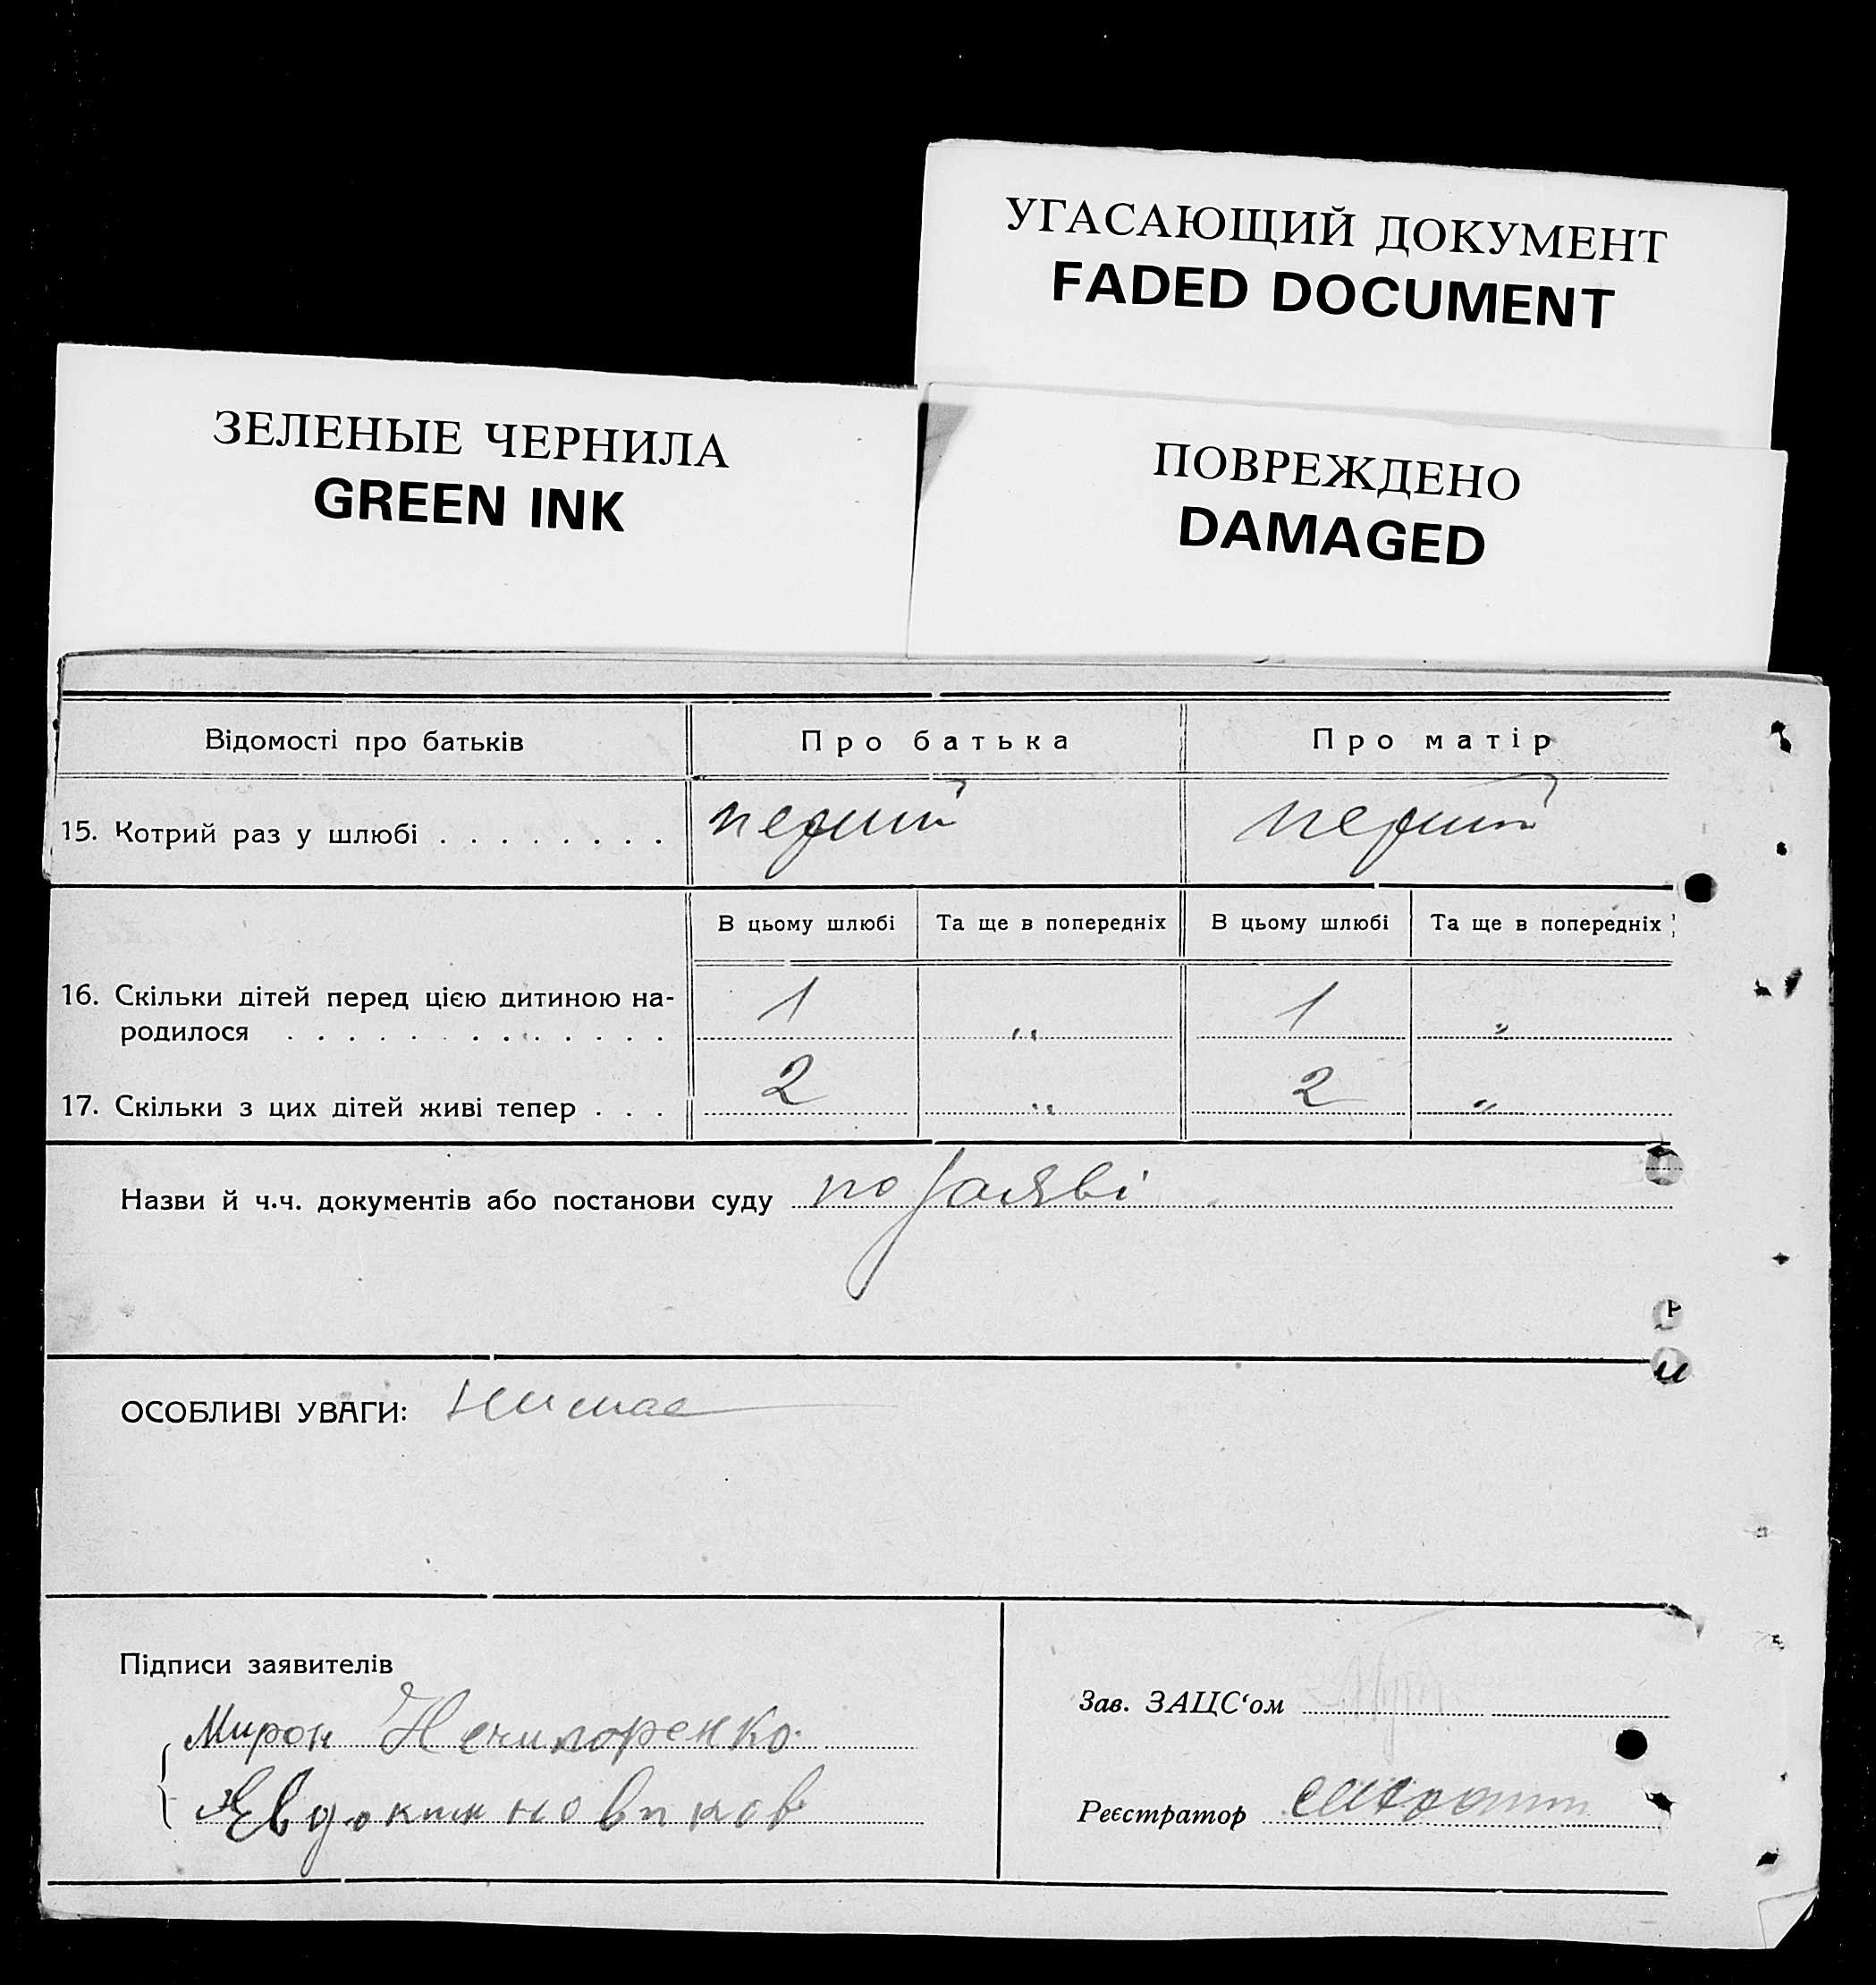 УГАСАЮЩИЙ ДОКУМЕНТ
FADED DOCUMENT
ЗЕЛЕНЫЕ ЧЕРНИЛА
GREEN INK
ПОВРЕЖДЕНО
DAMAGED
Відомості про батьків Про батька Про матір
15. Котрий раз у шлюбі . . . . . . . . перший перший
В цьому шлюбі Та ще в попередніх В цьому шлюбі Та ще в попередніх
16. Скільки дітей перед цією дитиною на-
родилося . . . . . . . . . . . . . 1 „ 1 „
17. Скільки з цих дітей живі тепер . . . 2 „ 2 „
Назви й ч.ч. документів або постанови суду по заяві
ОСОБЛИВІ УВАГИ: немае
Підписи заявителів
Мирон Нечипоренко
Явдоким Новиков
Зав. ЗАЦС‘ом
Реєстратор